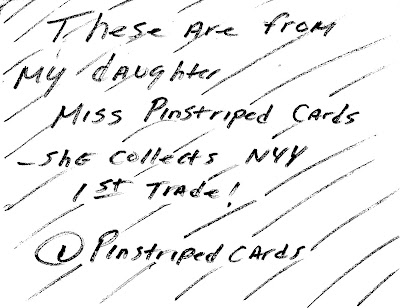 These are from
my daughter
Miss Pinstriped Cards
- she collects NYY
1st Trade!
@Pinstriped Cards